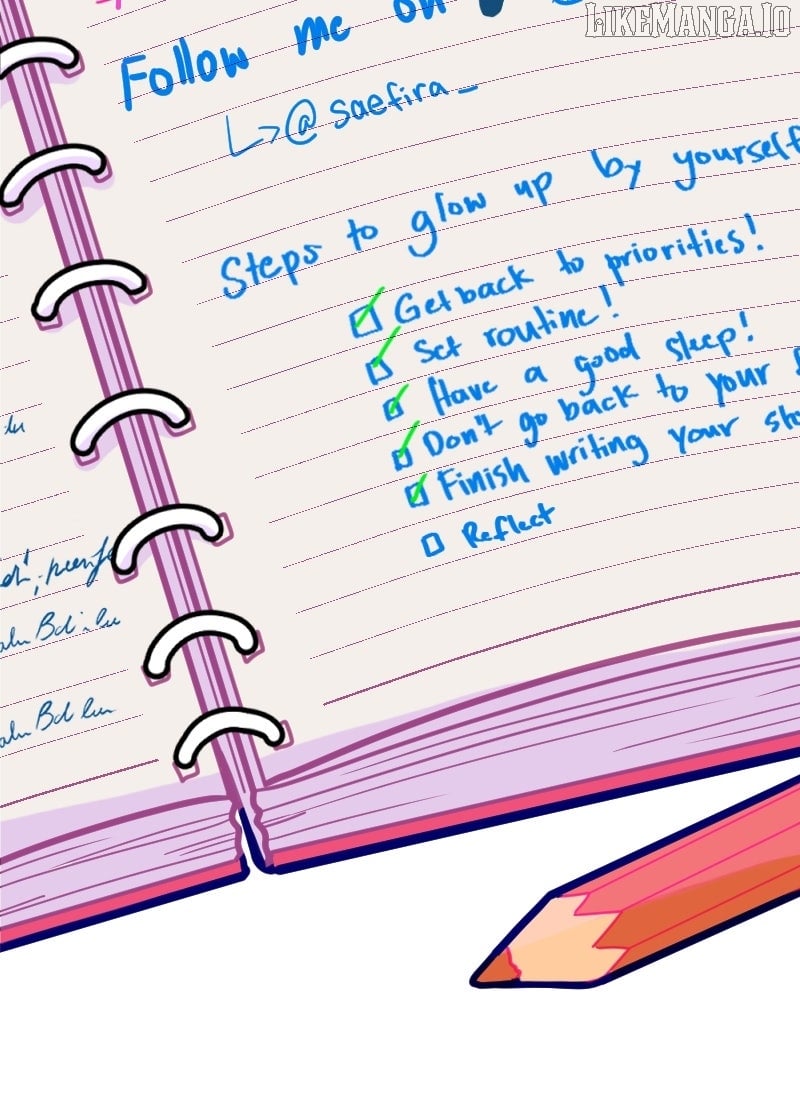 LIKEMANGA.IO
Follow me on
↳@saefira_
Steps to glow up by yourself
Get back to priorities!
Set routine!
Have a good sleep!
Don't go back to your
Finish writing your
Reflect
lu
Bd
Bd